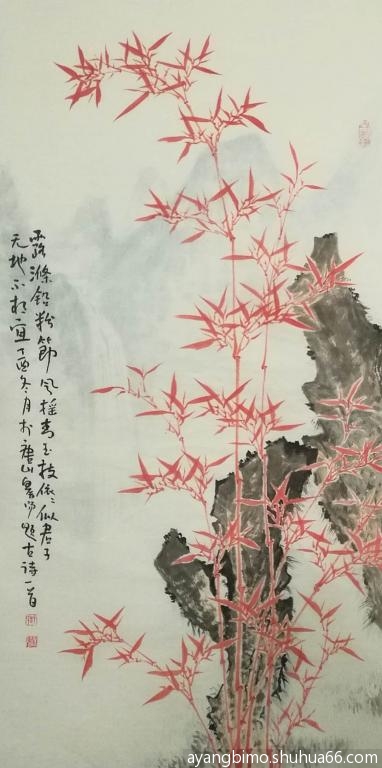 露滌鉛粉節風搖青玉枝依依似君子
无地不相宜丁酉冬月於唐山
題古詩一首
ayangbimo.shuhua66.com